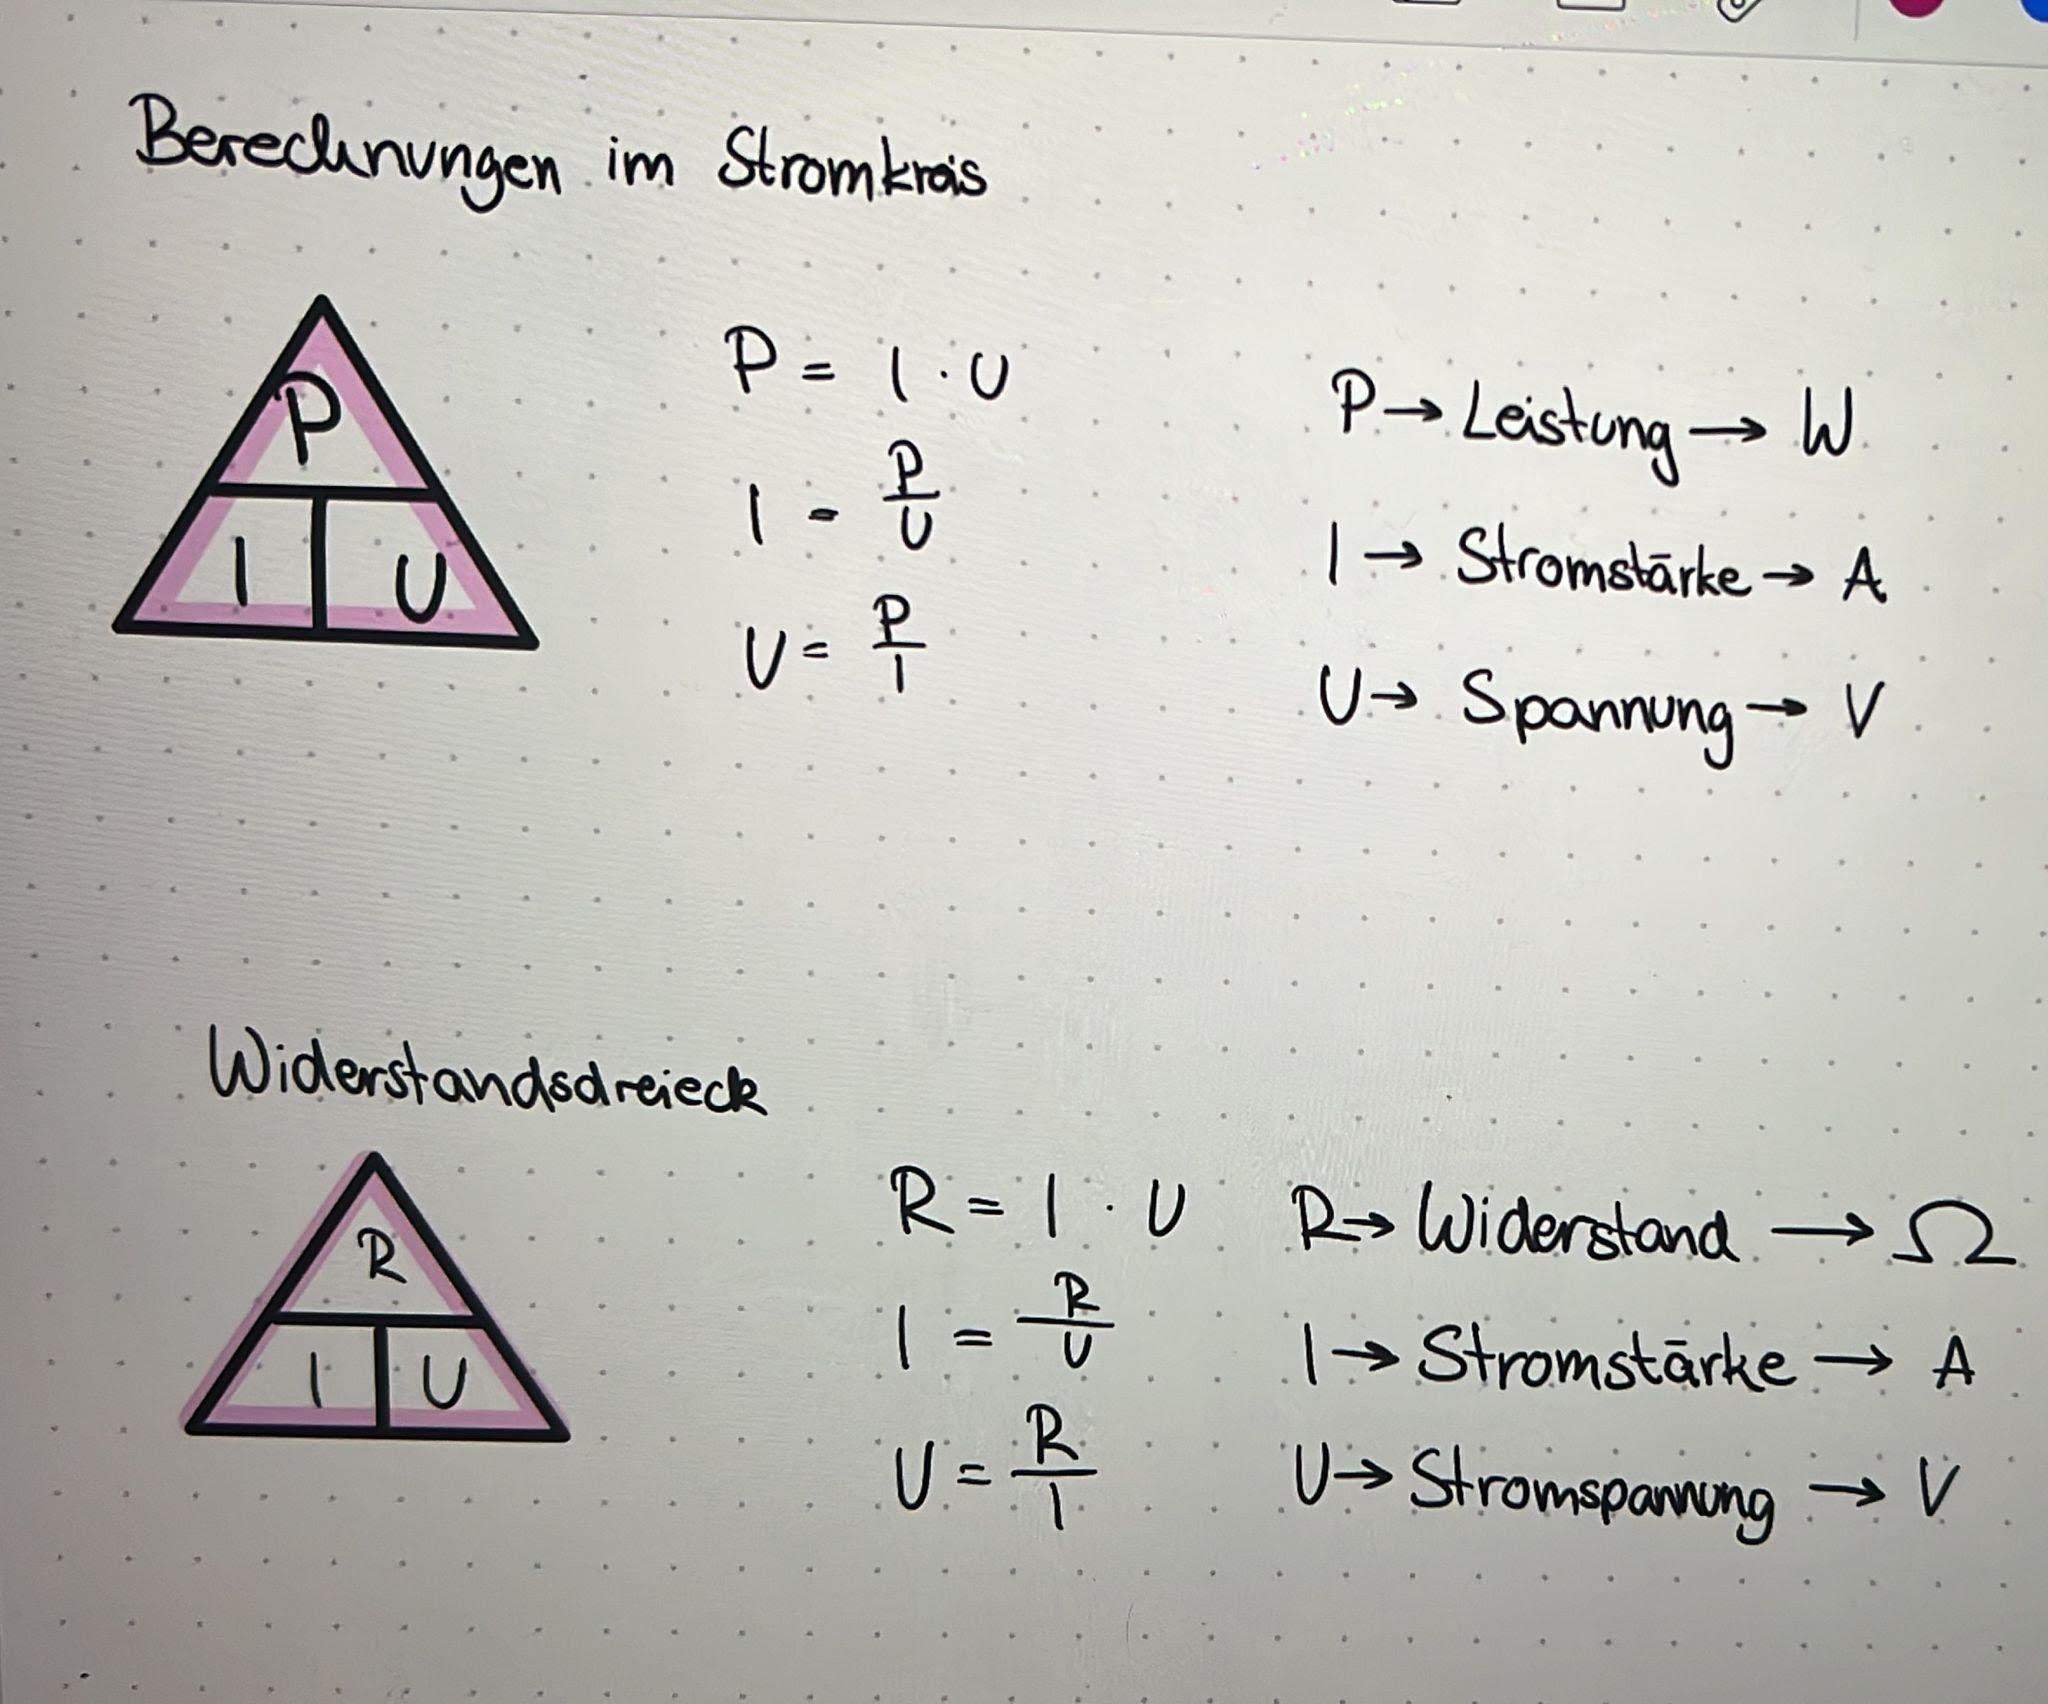 Berechnungen im Stromkreis
P
I U
P = I · U
I = P/U
U = P/I
P → Leistung → W
I → Stromstärke → A
U → Spannung → V
Widerstandsdreieck
R
I U
R = I · U
I = R/U
U = R/I
R → Widerstand → Ω
I → Stromstärke → A
U → Stromspannung → V